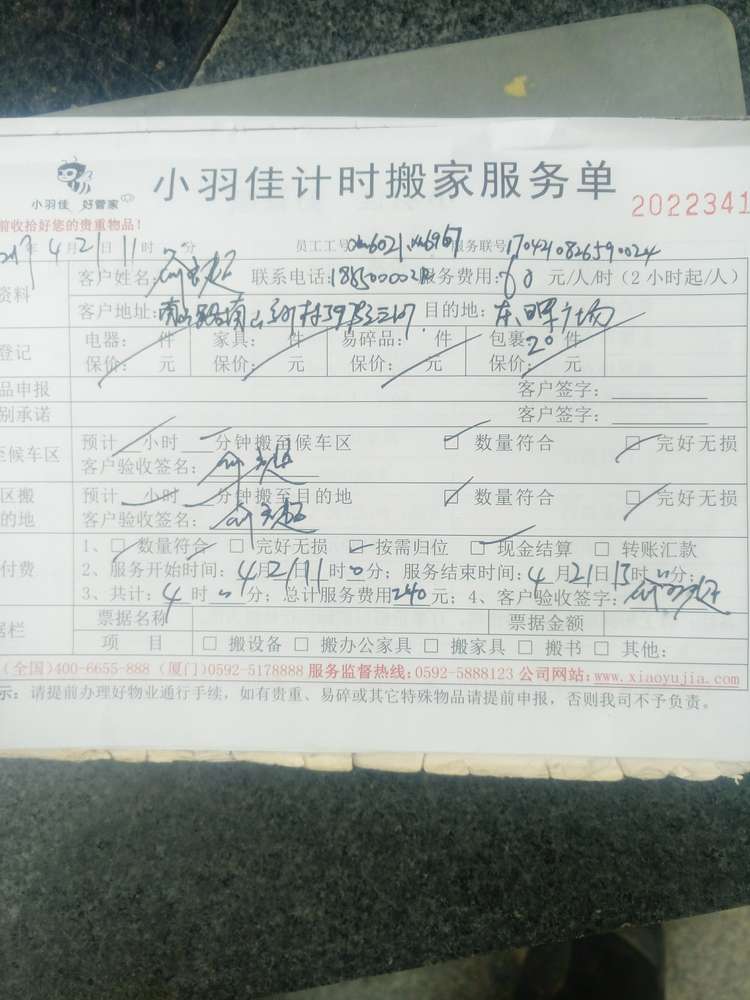 小羽佳 好管家
小羽佳计时搬家服务单
2022341
前收拾好您的贵重物品!
年 4月21 11时 分 员工工号 服务联号:1704210826590024
资料 客户姓名: 联系电话: 服务费用:60 元/人/时(2小时起/人)
客户地址: 目的地:东 广场
登记 电器: 件 家具: 件 易碎品: 件 包裹:20 件
保价: 元 保价: 元 保价: 元 保价: 元
品申报 客户签字:
别承诺 客户签字:
至候车区 预计 小时 分钟搬至候车区 □ 数量符合 □ 完好无损
客户验收签名:
区搬 预计 小时 分钟搬至目的地 □ 数量符合 □ 完好无损
的地 客户验收签名:
付费 1、□ 数量符合 □ 完好无损 □ 按需归位 □ 现金结算 □ 转账汇款
2、服务开始时间:4月21 11时 分; 服务结束时间:4月21日15时 分;
3、共计:4时 分; 总计服务费用240元; 4、客户验收签字:
据栏 票据名称 票据金额
项 目 □ 搬设备 □ 搬办公家具 □ 搬家具 □ 搬书 □ 其他:
(全国)400-6655-888 (厦门)0592-5178888 服务监督热线:0592-5888123 公司网站:www.xiaoyujia.com
示: 请提前办理好物业通行手续,如有贵重、易碎或其它特殊物品请提前申报,否则我司不予负责。